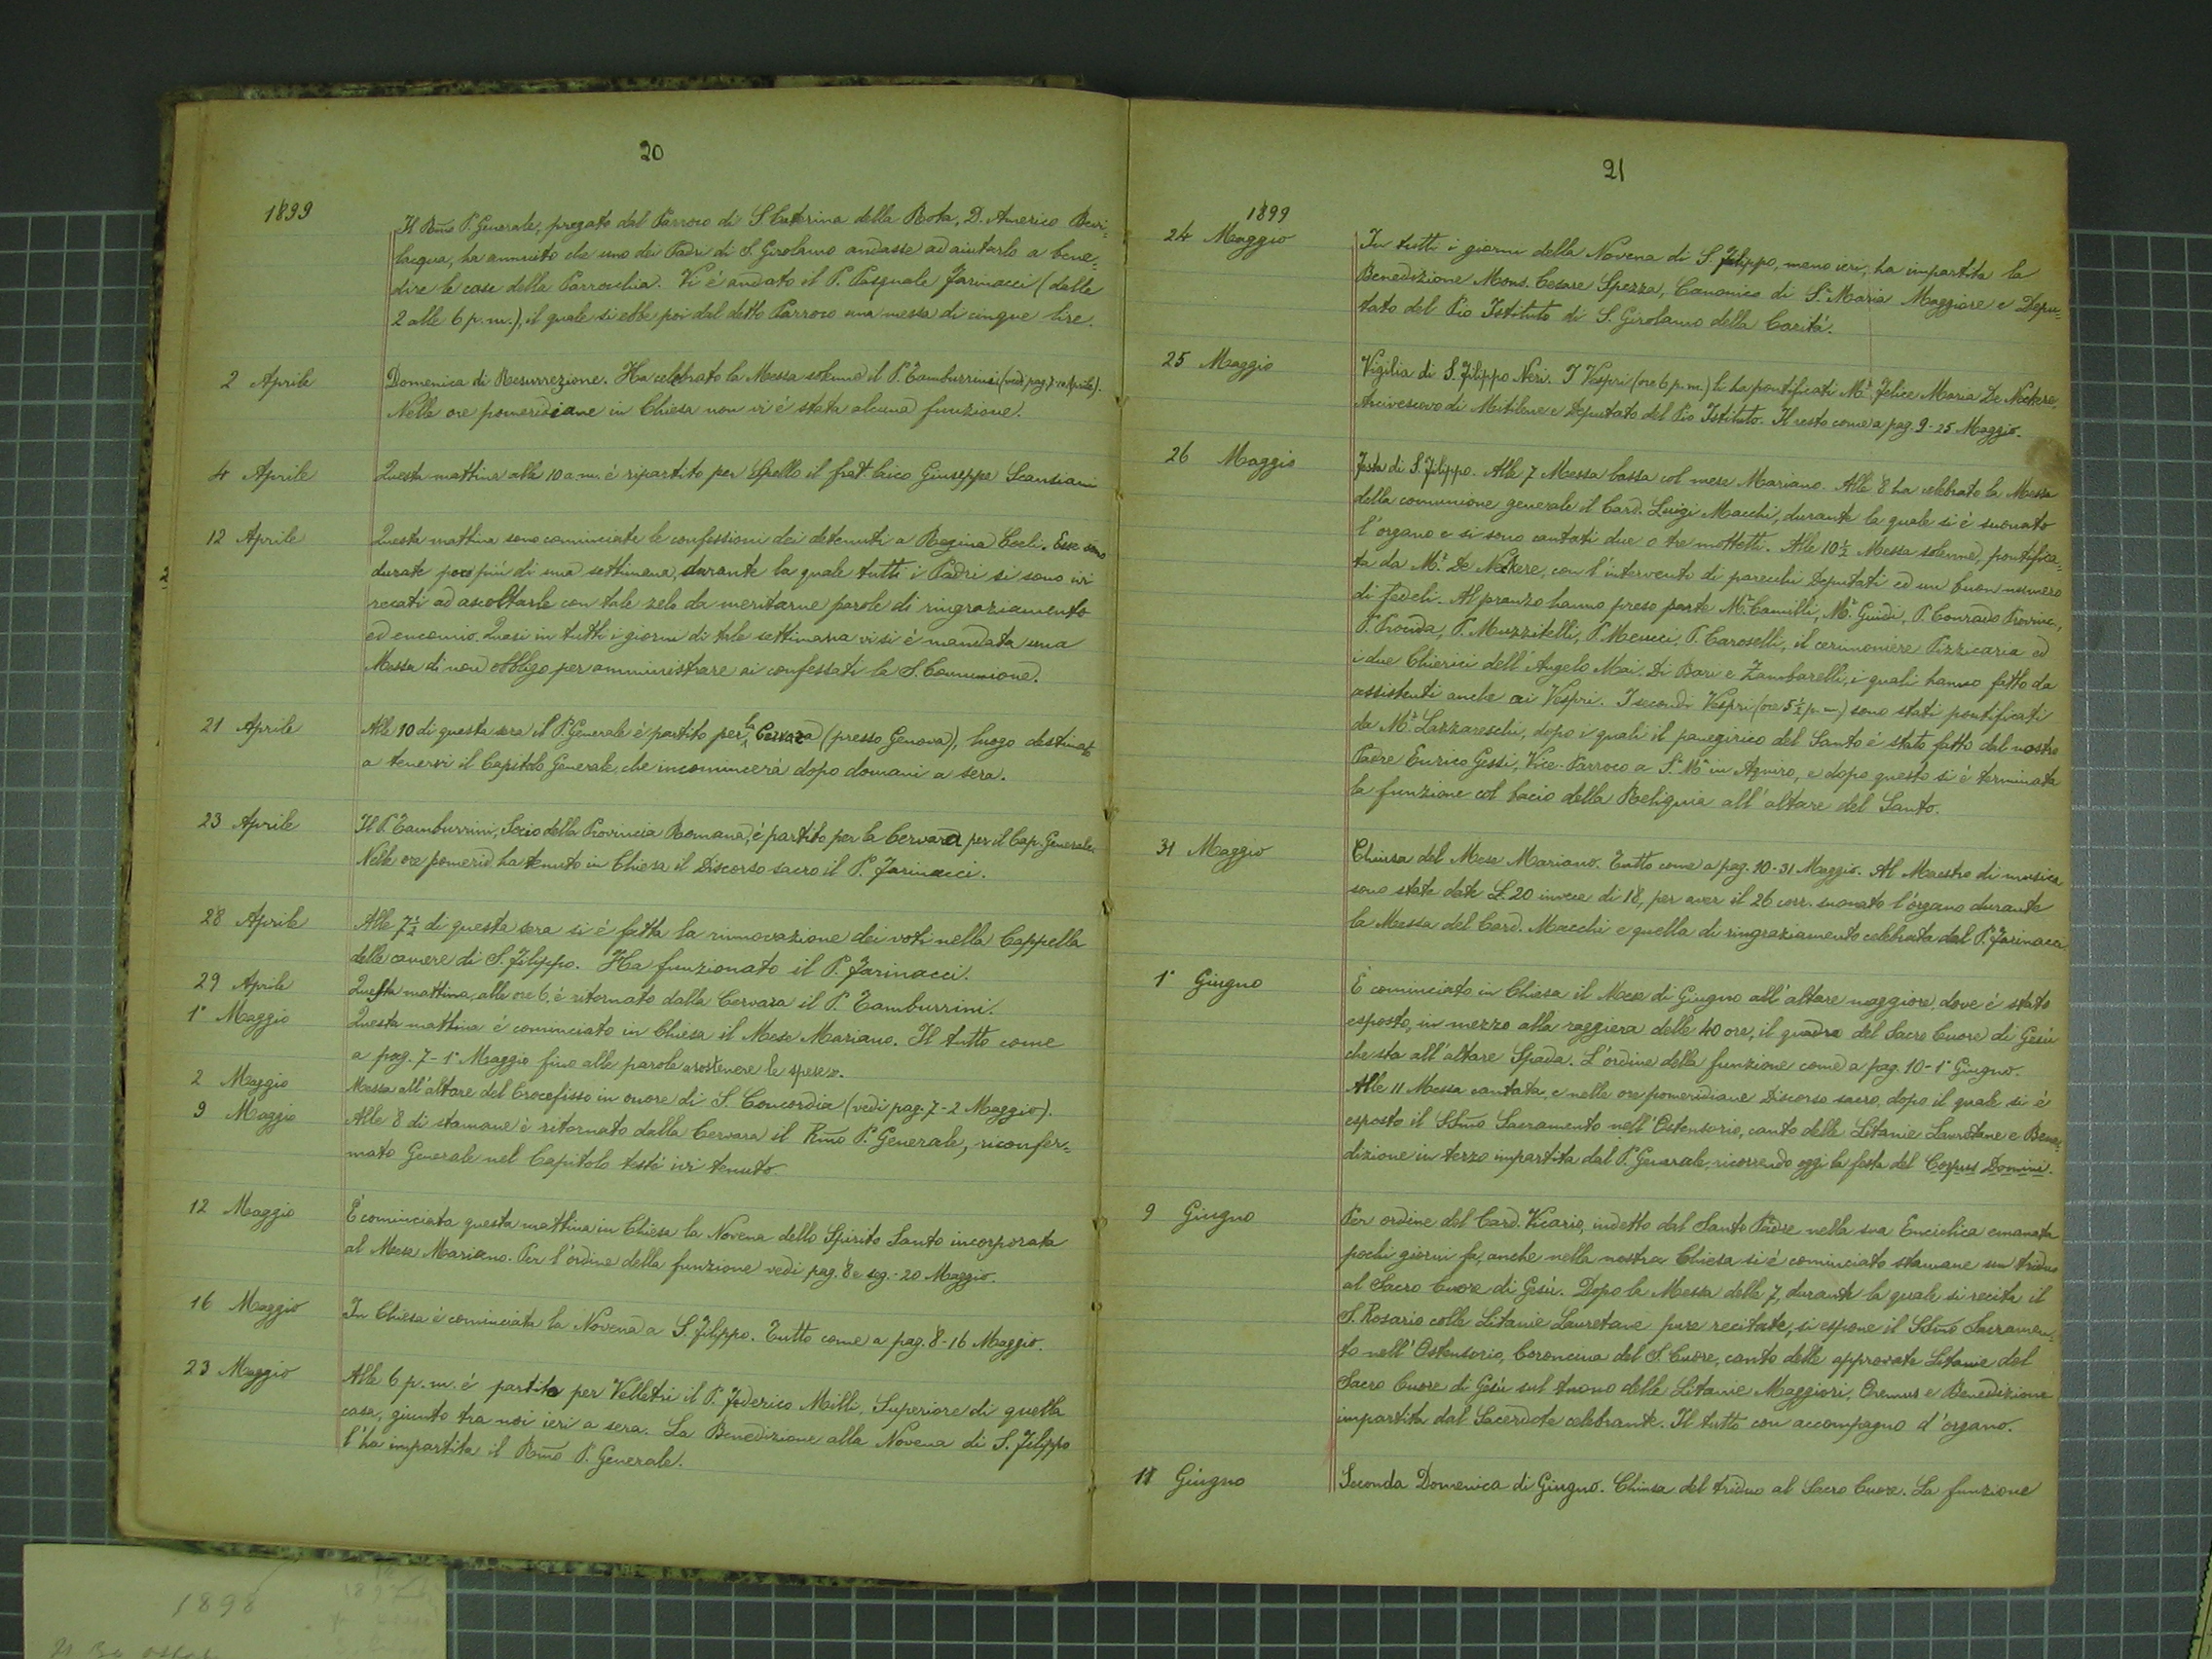 20
1899
Il Rm̃o P. Generale, pregato dal Parroco di S. Caterina della Rota, D. Americo Bevi=
lacqua, ha annuito che uno dei Padri di S. Girolamo andasse ad aiutarlo a bene=
dire le case della Parrocchia. Vi è andato il P. Pasquale Farinacci (dalle
2 alle 6 p.m.), il quale si ebbe poi dal detto Parroco una messa di cinque lire.
2 Aprile Domenica di Resurrezione. Ha celebrato la Messa solenne il P. Tamburrini (vedi pag. 7 10 Aprile).
Nelle ore pomeridiane in Chiesa non vi è stata alcuna funzione.
4 Aprile Questa mattina alle 10 a.m. è ripartito per Spello il frat. laico Giuseppe Scansiani
12 Aprile Questa mattina sono cominciate le confessioni dei detenuti a Regina Coeli. Esse sono
durate poco più di una settimana, durante la quale tutti i Padri si sono ivi
recati ad ascoltarle con tale zelo da meritarne parole di ringraziamento
ed encomio. Quasi in tutti i giorni di tale settimana vi si è mandata una
Messa di non obbligo per amministrare ai confessati la S. Comunione.
21 Aprile Alle 10 di questa sera il P. Generale è partito per la Cervara (presso Genova), luogo destinato
a tenervi il Capitolo Generale, che incomincerà dopo domani a sera.
23 Aprile Il P. Tamburrini, Socio della Provincia Romana, è partito per la Cervara per il Cap. Generale.
Nelle ore pomerid. ha tenuto in Chiesa il Discorso sacro il P. Farinacci.
28 Aprile Alle 7½ di questa sera si è fatta la rinnovazione dei voti nella Cappella
delle camere di S. Filippo. Ha funzionato il P. Farinacci.
29 Aprile Questa mattina, alle ore 6, è ritornato dalla Cervara il P. Tamburrini.
1° Maggio Questa mattina è cominciato in Chiesa il Mese Mariano. Il tutto come
a pag. 7 - 1° Maggio fino alle parole «sostenere le spese».
2 Maggio Messa all'altare del Crocefisso in onore di S. Concordia (vedi pag. 7 - 2 Maggio).
9 Maggio Alle 8 di stamane è ritornato dalla Cervara il Rm̃o P. Generale, riconfer=
mato Generale nel Capitolo testé ivi tenuto.
12 Maggio È cominciata questa mattina in Chiesa la Novena dello Spirito Santo incorporata
al Mese Mariano. Per l'ordine della funzione vedi pag. 8 e seg. - 20 Maggio.
16 Maggio In Chiesa è cominciata la Novena a S. Filippo. Tutto come a pag. 8 - 16 Maggio.
23 Maggio Alle 6 p.m. è partito per Velletri il P. Federico Milli, Superiore di quella
casa, giunto tra noi ieri a sera. La Benedizione alla Novena di S. Filippo
l'ha impartita il Rm̃o P. Generale.
21
1899
24 Maggio In tutti i giorni della Novena di S. Filippo, meno ieri, ha impartita la
Benedizione Mons. Cesare Spezza, Canonico di S. Maria Maggiore e Depu=
tato del Pio Istituto di S. Girolamo della Carità.
25 Maggio Vigilia di S. Filippo Neri. I Vespri (ore 6 p.m.) li ha pontificati Mr. Felice Maria De Neckere,
Arcivescovo di Mitilene e Deputato del Pio Istituto. Il resto come a pag. 9 - 25 Maggio.
26 Maggio Festa di S. Filippo. Alle 7 Messa bassa col mese Mariano. Alle 8 ha celebrato la Messa
della comunione generale il Card. Luigi Macchi, durante la quale si è suonato
l'organo e si sono cantati due o tre mottetti. Alle 10½ Messa solenne, pontifica=
ta da Mr. De Neckere, con l'intervento di parecchi Deputati ed un buon numero
di fedeli. Al pranzo hanno preso parte Mr. Camilli, Mr. Guidi, P. Conrado Provinc.,
P. Procida, P. Muzzitelli, P. Meucci, P. Caroselli, il cerimoniere Pizzicaria ed
i due Chierici dell'Angelo Mai Di Bari e Zambarelli, i quali hanno fatto da
assistenti anche ai Vespri. I secondi Vespri (ore 5½ p.m.) sono stati pontificati
da Mr. Lazzareschi, dopo i quali il panegirico del Santo è stato fatto dal nostro
Padre Enrico Gessi, Vice-Parroco a S. Ma in Aquiro, e dopo questo si è terminata
la funzione col bacio della Reliquia all'altare del Santo.
31 Maggio Chiusa del Mese Mariano. Tutto come a pag. 10 - 31 Maggio. Al Maestro di musica
sono state date L. 20 invece di 18, per aver il 26 corr. suonato l'organo durante
la Messa del Card. Macchi e quella di ringraziamento celebrata dal P. Farinacci
1° Giugno È cominciato in Chiesa il Mese di Giugno all'altare maggiore, dove è stato
esposto, in mezzo alla raggiera delle 40 ore, il quadro del Sacro Cuore di Gesù
che sta all'altare Spada. L'ordine della funzione come a pag. 10 - 1° Giugno.
Alle 11 Messa cantata, e nelle ore pomeridiane Discorso sacro, dopo il quale si è
esposto il SSm̃o Sacramento nell'Ostensorio, canto delle Litanie Lauretane e Bene=
dizione in terzo impartita dal P. Generale, ricorrendo oggi la festa del Corpus Domini.
9 Giugno Per ordine del Card. Vicario, indetto dal Santo Padre nella sua Enciclica emanata
pochi giorni fa, anche nella nostra Chiesa si è cominciato stamane un triduo
al Sacro Cuore di Gesù. Dopo la Messa delle 7, durante la quale si recita il
S. Rosario colle Litanie Lauretane pure recitate, si espone il SSm̃o Sacramen=
to nell'Ostensorio, Coroncina del S. Cuore, canto delle approvate Litanie del
Sacro Cuore di Gesù sul tuono delle Litanie Maggiori, Oremus e Benedizione
impartita dal Sacerdote celebrante. Il tutto con accompagno d'organo.
11 Giugno Seconda Domenica di Giugno. Chiusa del triduo al Sacro Cuore. La funzione
1898